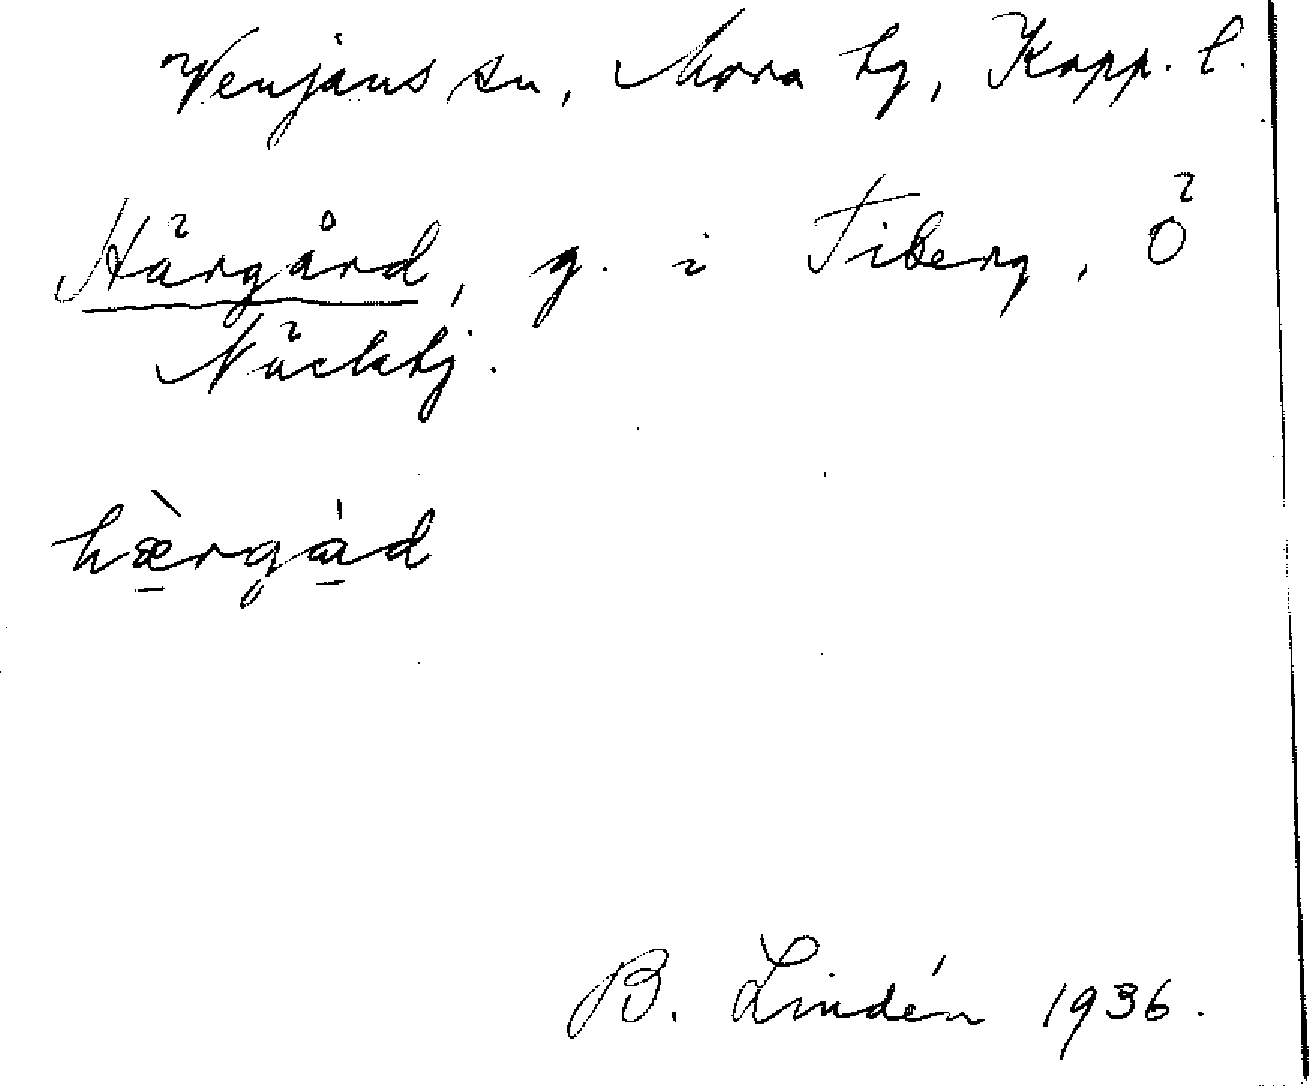 Venjans sn, Mora hg, Kopp. l.
Härgård, g. i Tiberg, Ö
Näckådj.
hæ̀rgåd
B. Lindén 1936.